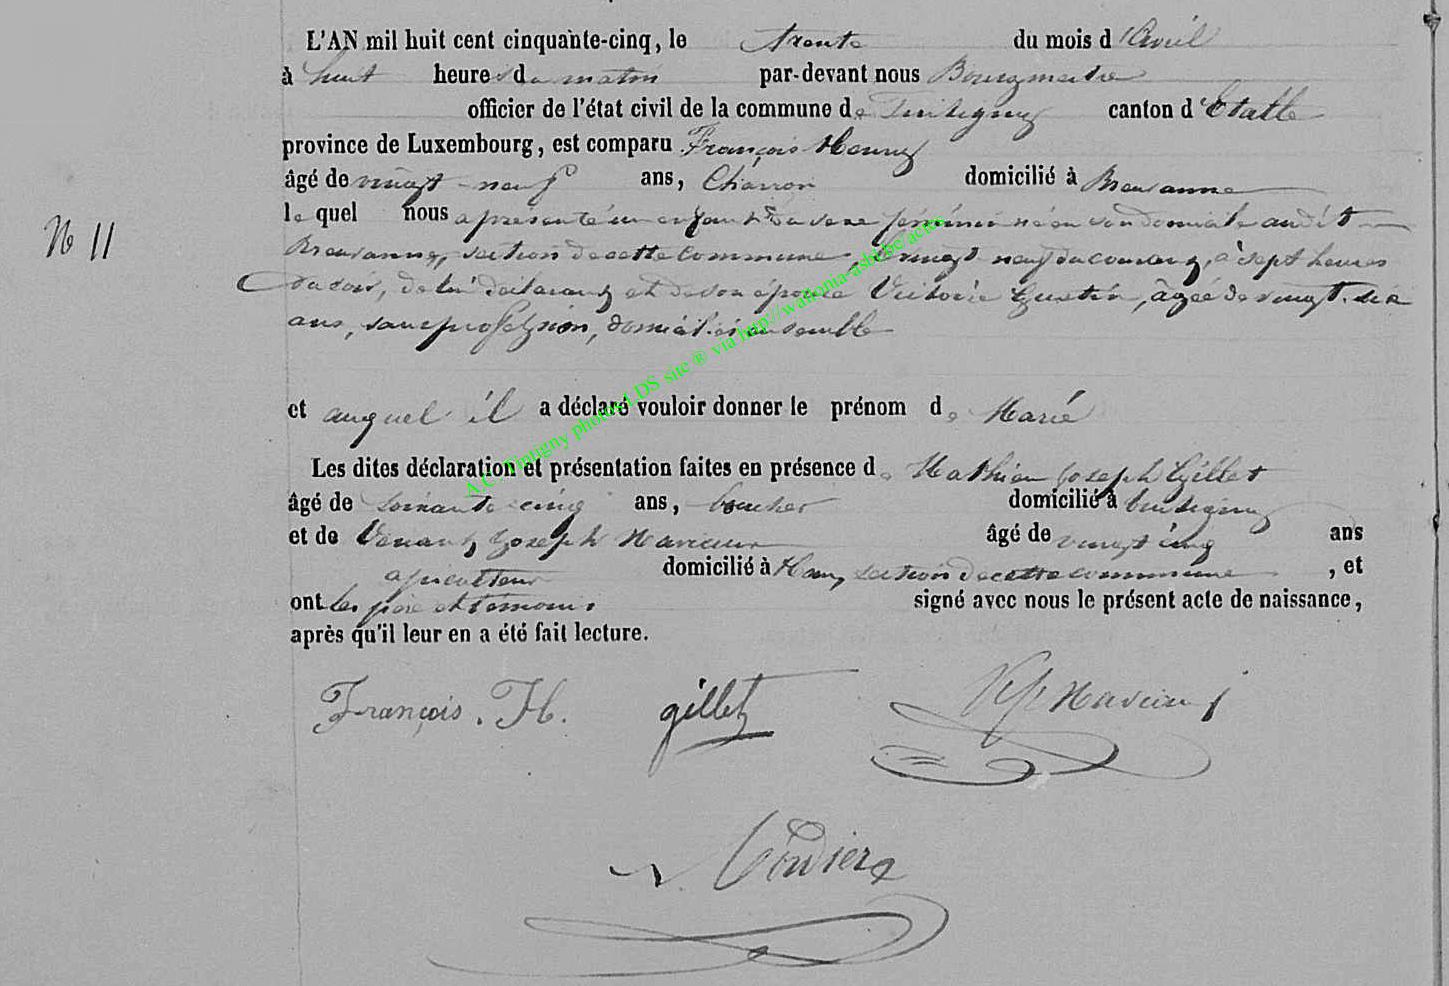 L'AN mil huit cent cinquante-cinq, le trente du mois d'Avril
à huit heures du matin par-devant nous Bourgmestre
officier de l'état civil de la commune de Tintigny canton d'Etalle
province de Luxembourg, est comparu François Henry
âgé de vingt-neuf ans, Charron domicilié à Breuvanne
N° 11
lequel nous a présenté un enfant du sexe féminin né en son domicile audit
Breuvanne, section de cette commune, le vingt neuf du courant, à sept heures
du soir, de lui déclarant et de son épouse Victorie Gustin, âgée de vingt-six
ans, sans profession, domiciliés ensemble
et auquel il a déclaré vouloir donner le prénom de Marie
Les dites déclaration et présentation faites en présence de Mathieu Joseph Gillet
âgé de soixante cinq ans, boucher domicilié à Tintigny
et de Venant Joseph âgé de vingt cinq ans
domicilié à Han, section de cette commune, et
ont les père et témoins signé avec nous le présent acte de naissance,
après qu'il leur en a été fait lecture.
François. H. gillet
A.C. Tintigny photos LDS site ® via http://wallonia-asbl.be/actes